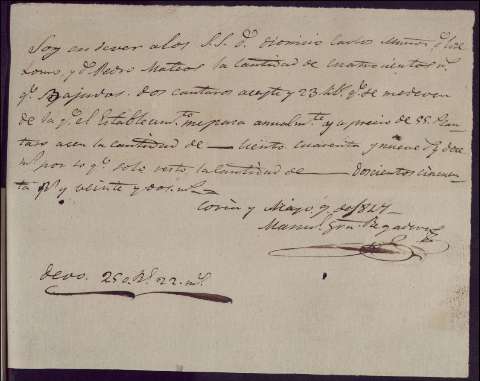 Soy en dever a los S.S. Dⁿ. Dionicio Carlos Muñoz, y
y Dⁿ. Pedro Mateos la cantidad de cuatrocientos rˢ.
qᵉ. Rajados dos cantaros aceyte y 23 lbˢ. qᵉ. de me deven
de la qᵉ. el Establecimᵗᵒ. me pasa anualmᵗᵉ. y a precio de 55 rˢ. can
taro acen la cantidad de — ciento cuarenta y nueve rˢ y doce
mˢ por lo qᵉ. solo resto la cantidad de — Doscientos cincuen-
ta rˢ y veinte y dos mˢ —
Coria y Mayo 9 de 1847
Manuel
devo. 250 Rˢ. 22 mˢ.